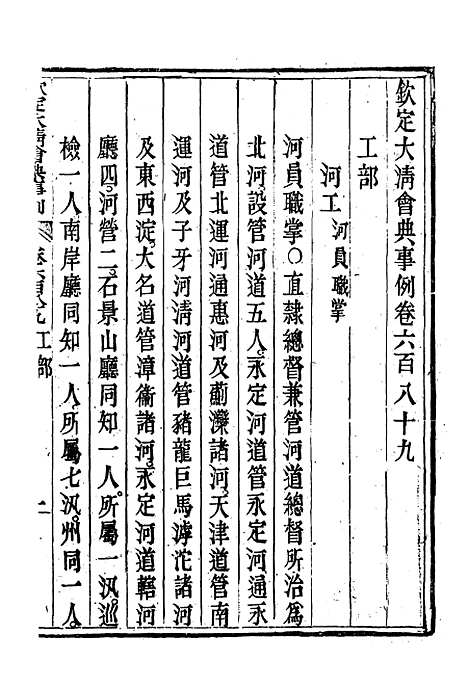 欽定大清會典事例卷六百八十九
工部
河工河員職掌
河員職掌○直隸總督兼管河道總督所治為
北河。設管河道五人。永定河道管永定河通永
道管北運河通惠河及薊灤諸河。天津道管南
運河及子牙河清河道管豬龍巨馬滹沱諸河
及東西淀。大名道管漳衞諸河。永定河道轄河
廳四。河營二。石景山廳同知一人。所屬一汛。巡
檢一人南岸廳同知一人。所屬七汛。州同一人。
欽定大清會典事例 工部 一